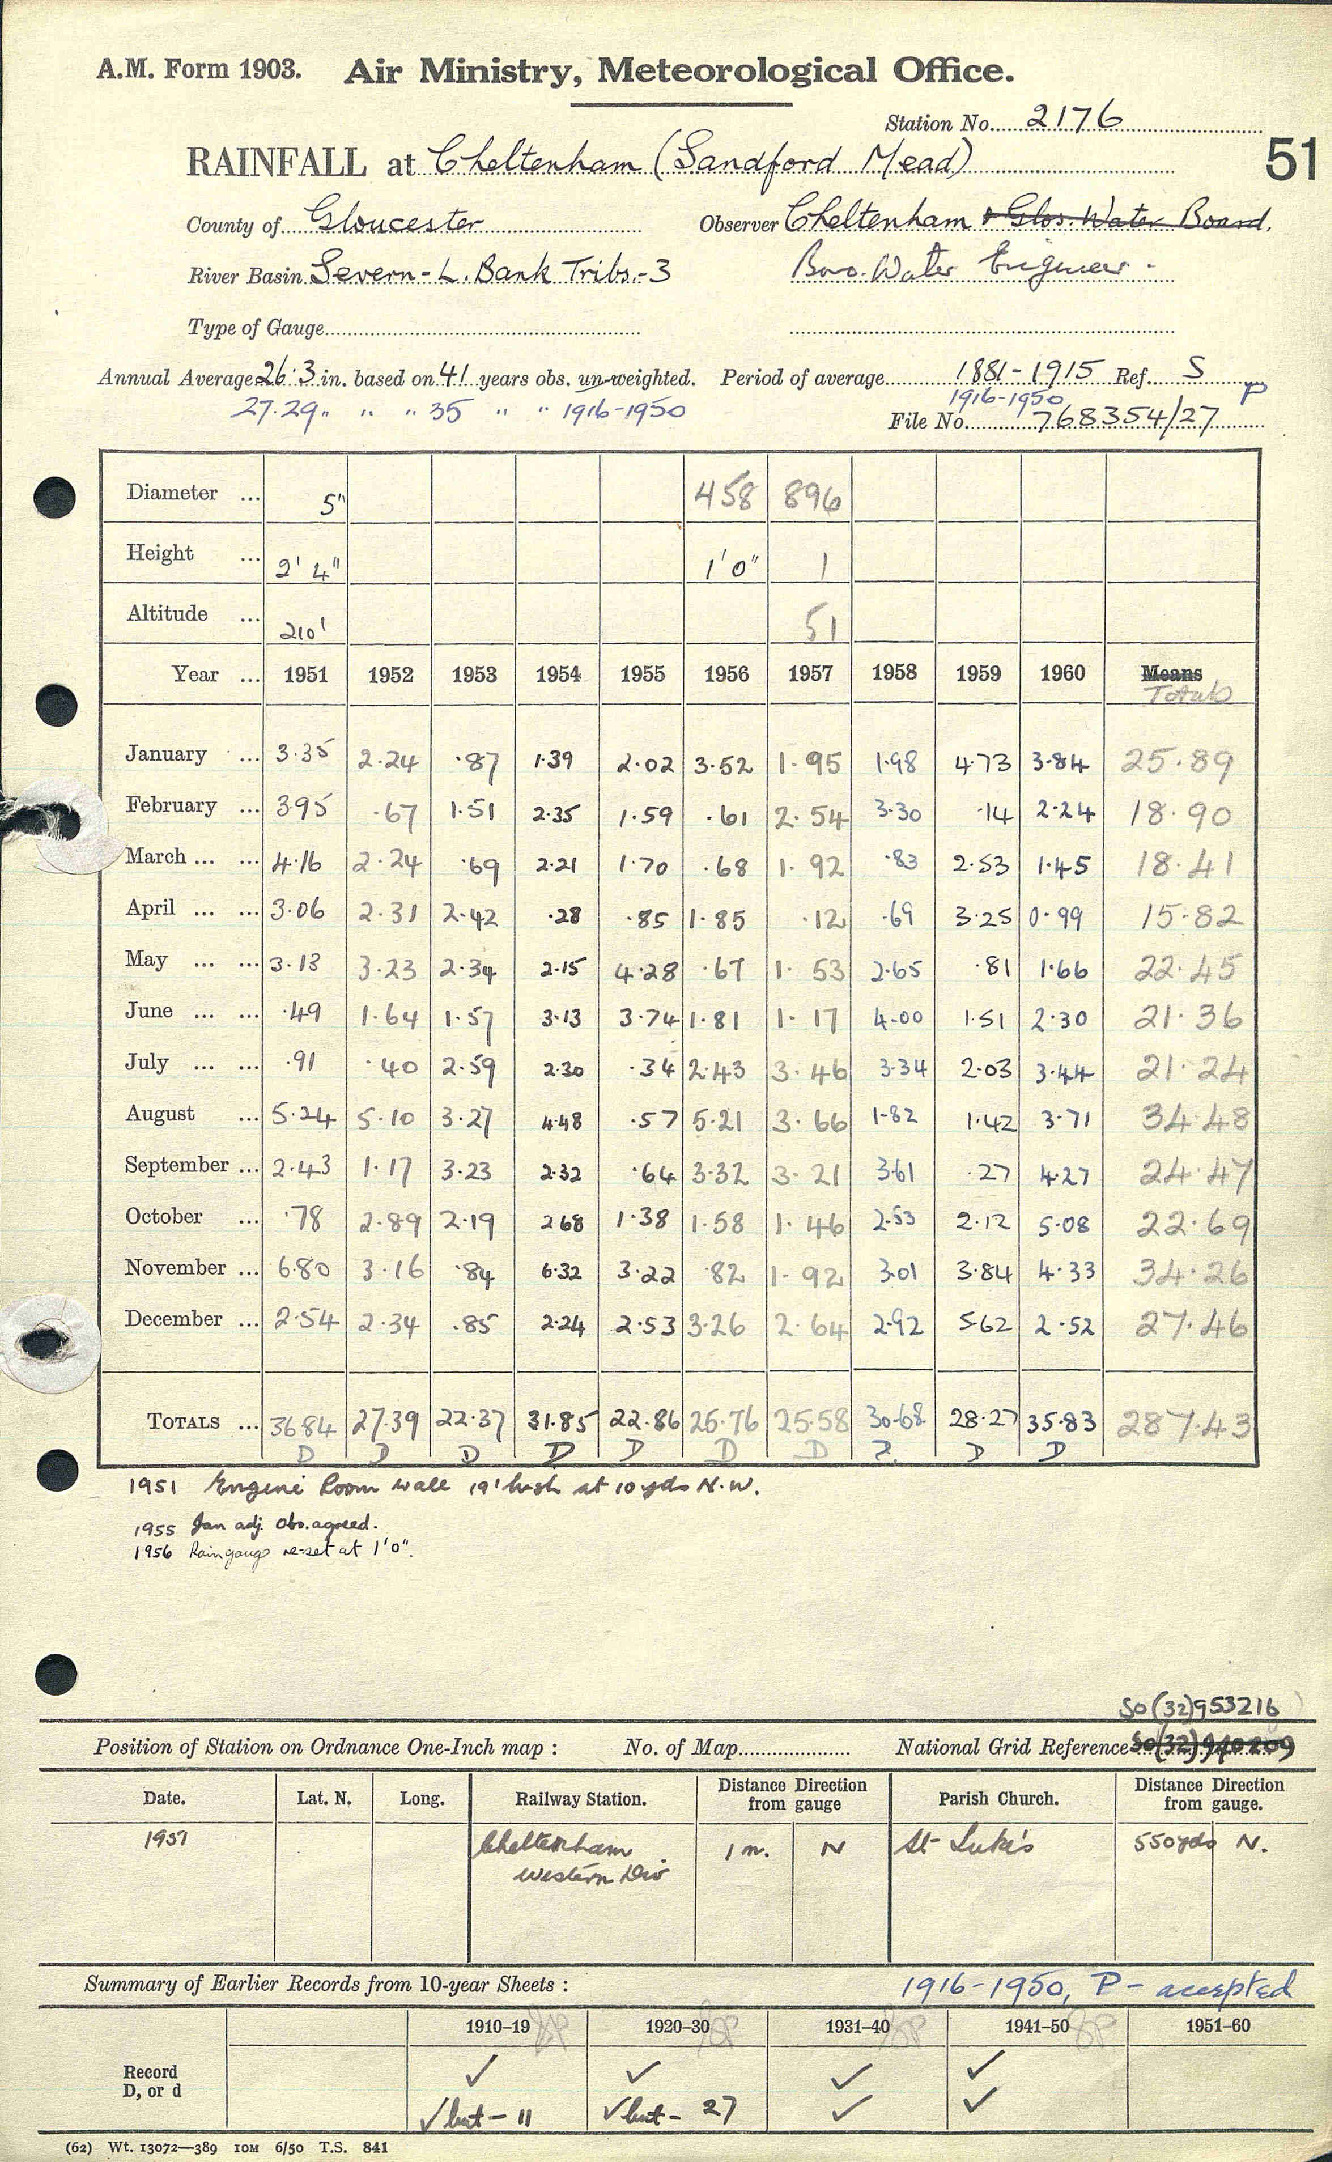 A.M. Form 1903. Air Ministry, Meteorological Office.
Station No. 2176
51
RAINFALL at Cheltenham (Sandford Mead)
County of Gloucester Observer Cheltenham & Glos. Water Board.
River Basin Severn - L. Bank Tribs. - 3 Boro. Water Engineer.
Type of Gauge
Annual Average 26.3 in. based on 41 years obs. un-weighted. Period of average 1881-1915 Ref. S
27.29 " " " 35 " " 1916-1950 1916-1950 P
File No. 768354/27
Diameter ... 5" 458 896
Height ... 2' 4" 1'0" 1
Altitude ... 210' 51
Year ... 1951 1952 1953 1954 1955 1956 1957 1958 1959 1960 Means
Totals
January ... 3.35 2.24 .87 1.39 2.02 3.52 1.95 1.98 4.73 3.84 25.89
February ... 3.95 .67 1.51 2.35 1.59 .61 2.54 3.30 .14 2.24 18.90
March ... ... 4.16 2.24 .69 2.21 1.70 .68 1.92 .83 2.53 1.45 18.41
April ... ... 3.06 2.31 2.42 .28 .85 1.85 .12 .69 3.25 0.99 15.82
May ... ... 3.13 3.23 2.34 2.15 4.28 .67 1.53 2.65 .81 1.66 22.45
June ... ... .49 1.64 1.57 3.13 3.74 1.81 1.17 4.00 1.51 2.30 21.36
July ... ... .91 .40 2.59 2.30 .34 2.43 3.46 3.34 2.03 3.44 21.24
August ... 5.24 5.10 3.27 4.48 .57 5.21 3.66 1.82 1.42 3.71 34.48
September ... 2.43 1.17 3.23 2.32 .64 3.32 3.21 3.61 .27 4.27 24.47
October ... .78 2.89 2.19 2.68 1.38 1.58 1.46 2.53 2.12 5.08 22.69
November ... 6.80 3.16 .84 6.32 3.22 .82 1.92 3.01 3.84 4.33 34.26
December ... 2.54 2.34 .85 2.24 2.53 3.26 2.64 2.92 5.62 2.52 27.46
TOTALS ... 36.84 27.39 22.37 31.85 22.86 25.76 25.58 30.68 28.27 35.83 287.43
D D D D D D D D D
1951 Engine Room wall 19' high at 10 yds N.W.
1955 Jan adj. Obs. agreed.
1956 Raingauge re-set at 1'0".
SO(32)953216
Position of Station on Ordnance One-Inch map : No. of Map National Grid Reference SO(32)940209
Date. Lat. N. Long. Railway Station. Distance Direction from gauge Parish Church. Distance Direction from gauge.
1937 Cheltenham 1 m. N St Luke's 550 yds N.
Western Div
Summary of Earlier Records from 10-year Sheets : 1916-1950, P - accepted
1910–19 1920–30 1931–40 1941–50 1951–60
Record ✓ ✓ ✓ ✓
D, or d ✓ but - 11 ✓ but - 27 ✓ ✓
(62) Wt. 13072—389 10M 6/50 T.S. 841